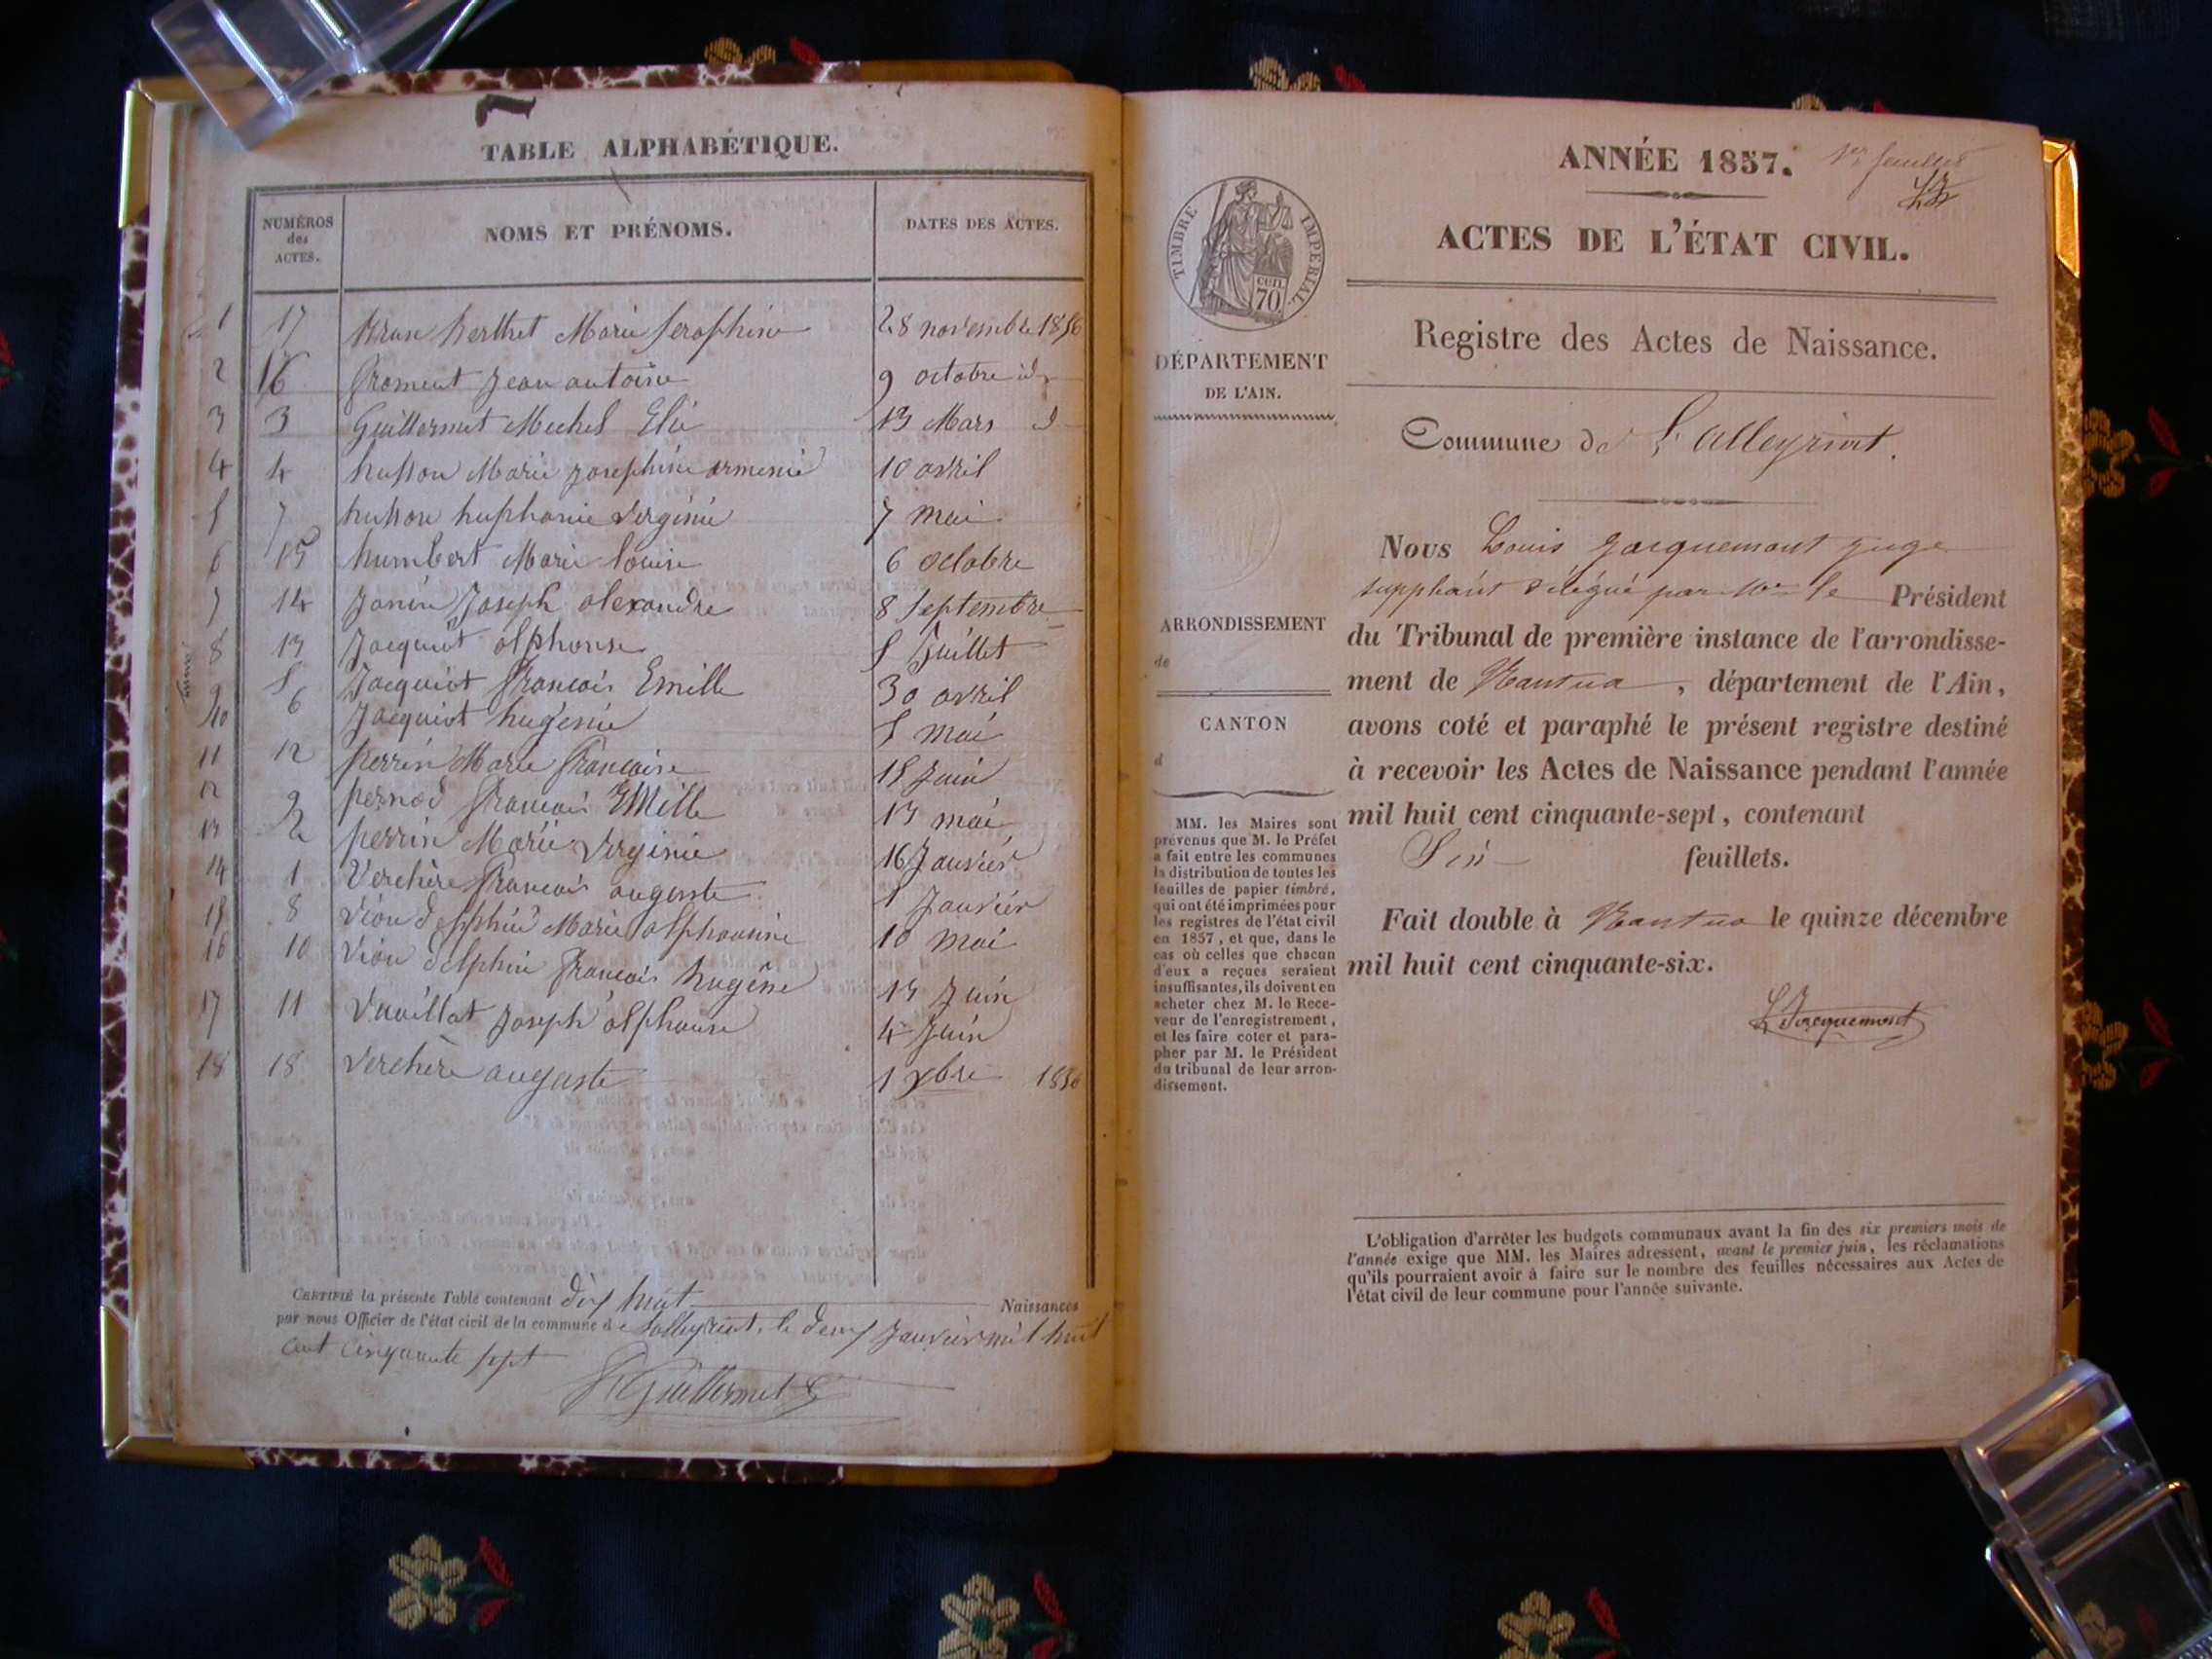 TABLE ALPHABÉTIQUE.
NUMÉROS des ACTES. NOMS ET PRÉNOMS. DATES DES ACTES.
1 17 Berthet Marie Seraphine 28 novembre 1856
2 16 froment Jean antoine 9 octobre id
3 3 Guillermet Michel Elie 13 Mars d
4 4 husson Marie Josephine armenie 10 avril
5 7 husson huphanie Verginie 7 mai
6 15 humbert Marie louise 6 octobre
7 14 Janin Joseph alexandre 8 Septembre
8 13 Jacquiot alphonse 5 Juillet
9 5 Jacquiot francois Emille 30 avril
10 6 Jacquiot hugenie 5 mai
11 12 perrin Marie francoise 15 Juin
12 9 pernod francois EMille 13 mai
13 2 perrin Marie Virginie 16 Janvier
14 1 Verchère francois auguste 1 Janvier
15 8 Vion delphin Marie alphonsine 10 mai
16 10 Vion delphin francois hugène 13 Juin
17 11 Vuaillat Joseph alphonse 4 Juin
18 18 Verchère auguste 1 xbre 1856
CERTIFIÉ la présente Table contenant dix huit Naissances
par nous Officier de l'état civil de la commune de Lalleyriat, le deux Janvier mil huit
cent cinquante sept
Guillermet
ANNÉE 1857. 1er feuillet
ACTES DE L'ÉTAT CIVIL.
TIMBRE IMPÉRIAL
CENT. 70
DÉPARTEMENT
DE L'AIN.
Registre des Actes de Naissance.
Commune de Lalleyriat.
ARRONDISSEMENT
de
CANTON
d
MM. les Maires sont
prévenus que M. le Préfet
a fait entre les communes
la distribution de toutes les
feuilles de papier timbré,
qui ont été imprimées pour
les registres de l'état civil
en 1857, et que, dans le
cas où celles que chacun
d'eux a reçues seraient
insuffisantes, ils doivent en
acheter chez M. le Rece-
veur de l'enregistrement,
et les faire coter et para-
pher par M. le Président
du tribunal de leur arron-
dissement.
Nous Louis Jacquemont juge
suppléant délégué par Mr le Président
du Tribunal de première instance de l'arrondisse-
ment de Nantua, département de l'Ain,
avons coté et paraphé le présent registre destiné
à recevoir les Actes de Naissance pendant l'année
mil huit cent cinquante-sept, contenant
Six feuillets.
Fait double à Nantua le quinze décembre
mil huit cent cinquante-six.
L Jacquemont
L'obligation d'arrêter les budgets communaux avant la fin des six premiers mois de
l'année exige que MM. les Maires adressent, avant le premier juin, les réclamations
qu'ils pourraient avoir à faire sur le nombre des feuilles nécessaires aux Actes de
l'état civil de leur commune pour l'année suivante.